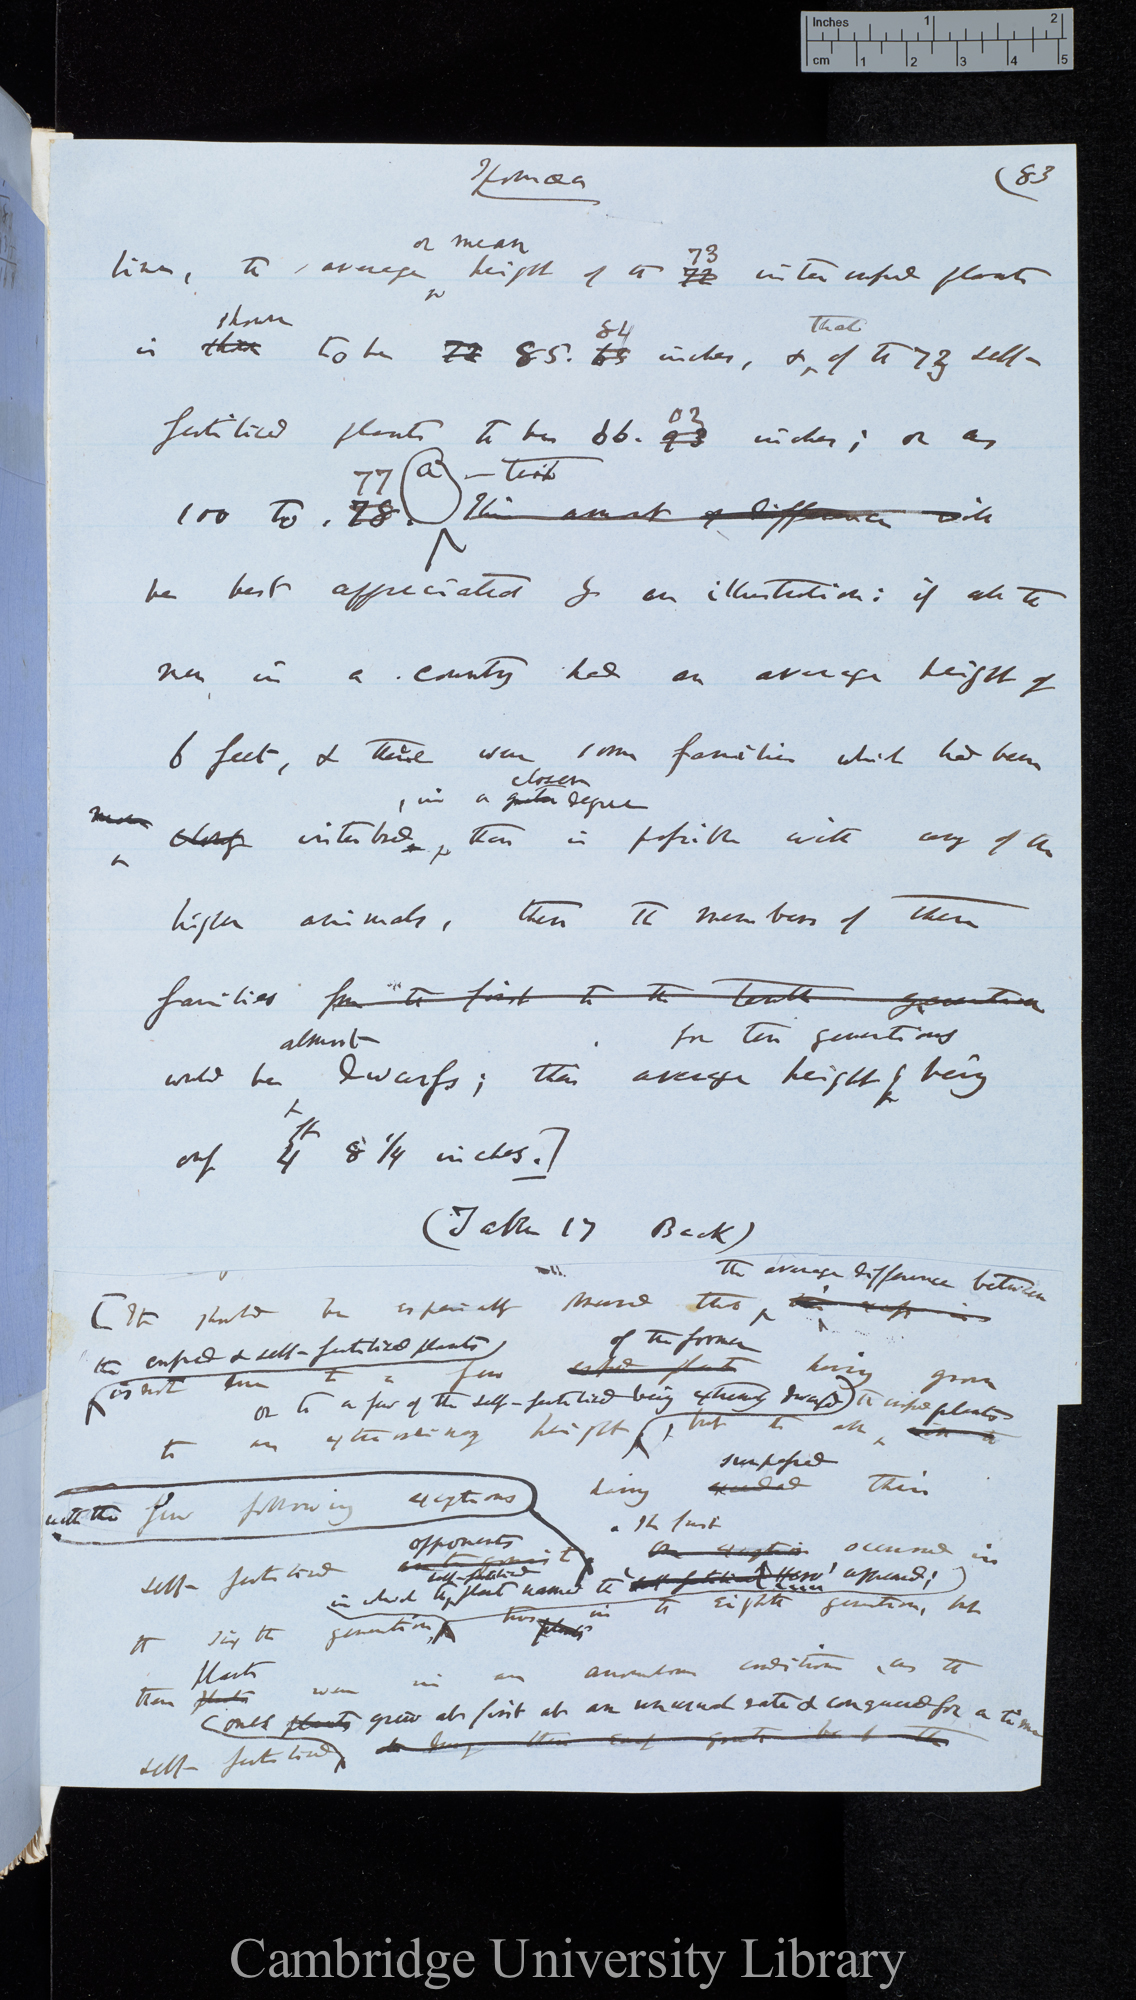 Inches 1 2
cm 1 2 3 4 5
Ipomœa (83
or mean 73
lines, the average height of the 72 intercrossed plants
shown 84 that
is to be 72 85. inches, & of the 73 self-
02
fertilised plants to be 66. 93 inches; or as
77 (a) — text
100 to 78. This amount of difference will
be best appreciated by an illustration: if all the
men in a country had an average height of
6 feet, & there were some families which had been
closer
, in a degree
more closely interbred, than is possible with any of the
higher animals, then the members of these
families from the first to the tenth generation
almost for ten generations
would be dwarfs; their average height being
ft
only 4 8 1/4 inches.]
(Table 17 Back)
the average difference between
[It should be especially observed that
the crossed & self-fertilised plants of the former
is not due to a few crossed plants having grown
or to a few of the self-fertilised being extremely dwarfed the crossed plants
to an extraordinary height, but to all
surpassed
with the few following exceptions having exceeded their
The first
opponents
self-fertilised occurred in
self-fertilised
in which the plant named the "Hero" appeared;
the sixth generation, two in the eighth generation, but
plants
these plants were in an anomalous condition, as the
ones plants grew at first at an unusual rate & conquered for a time
self-fertilised
Cambridge University Library